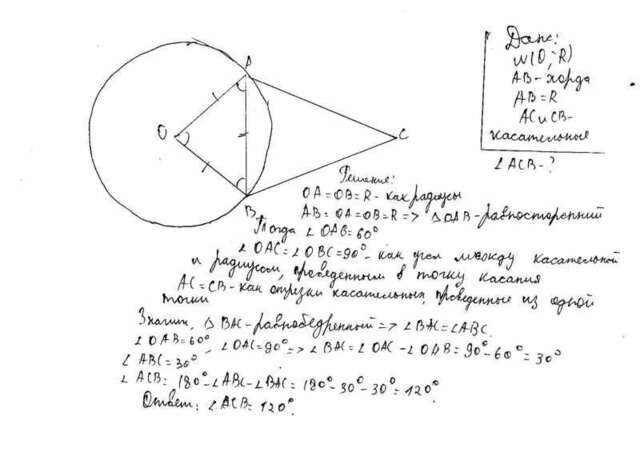 A
O
C
B
Дано:
W(O; R)
AB - хорда
AB = R
AC и CB -
касательные
∠ACB - ?
Решение:
OA = OB = R - как радиусы
AB = OA = OB = R => △OAB - равносторонний
Тогда ∠OAB = 60°
∠OAC = ∠OBC = 90° - как угол между касательной
и радиусом, проведенным в точку касания
AC = CB - как отрезки касательных, проведенные из одной
точки
Значит, △BAC - равнобедренный => ∠BAC = ∠ABC.
∠OAB = 60° ∠OAC = 90° => ∠BAC = ∠OAC - ∠OAB = 90° - 60° = 30°
∠ABC = 30°
∠ACB = 180° - ∠ABC - ∠BAC = 180° - 30° - 30° = 120°
Ответ: ∠ACB = 120°.